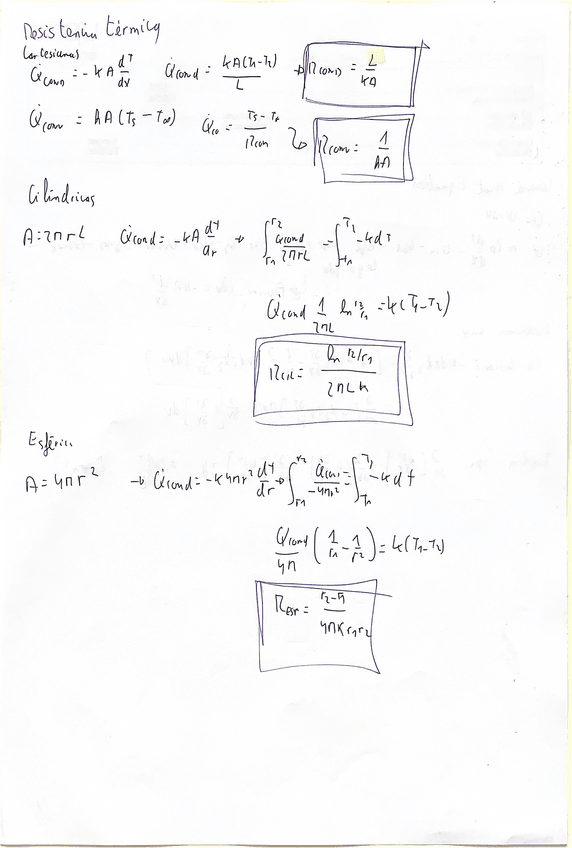 Resistencia térmica
Cartesianas
Q̇cond = -kA dT/dx   Q̇cond = kA(T1-T2)/L → Rcond = L/kA
Q̇conv = hA(Ts - T∞)   Q̇co = (Ts - T∞)/Rcon   Rconv = 1/hA
Cilíndricas
A = 2πrL   Q̇cond = -kA dT/dr → ∫r1^r2 Q̇cond/2πrL = ∫T1^T2 -k dT
Q̇cond 1/2πL ln r2/r1 = k(T1-T2)
RCIL = ln r2/r1 / 2πLk
Esférica
A = 4πr² → Q̇cond = -k4πr² dT/dr → ∫r1^r2 Q̇con/-4πr² = ∫ -k dT
Q̇cond/4π (1/r1 - 1/r2) = k(T1-T2)
Resf = r2-r1 / 4πk r1r2